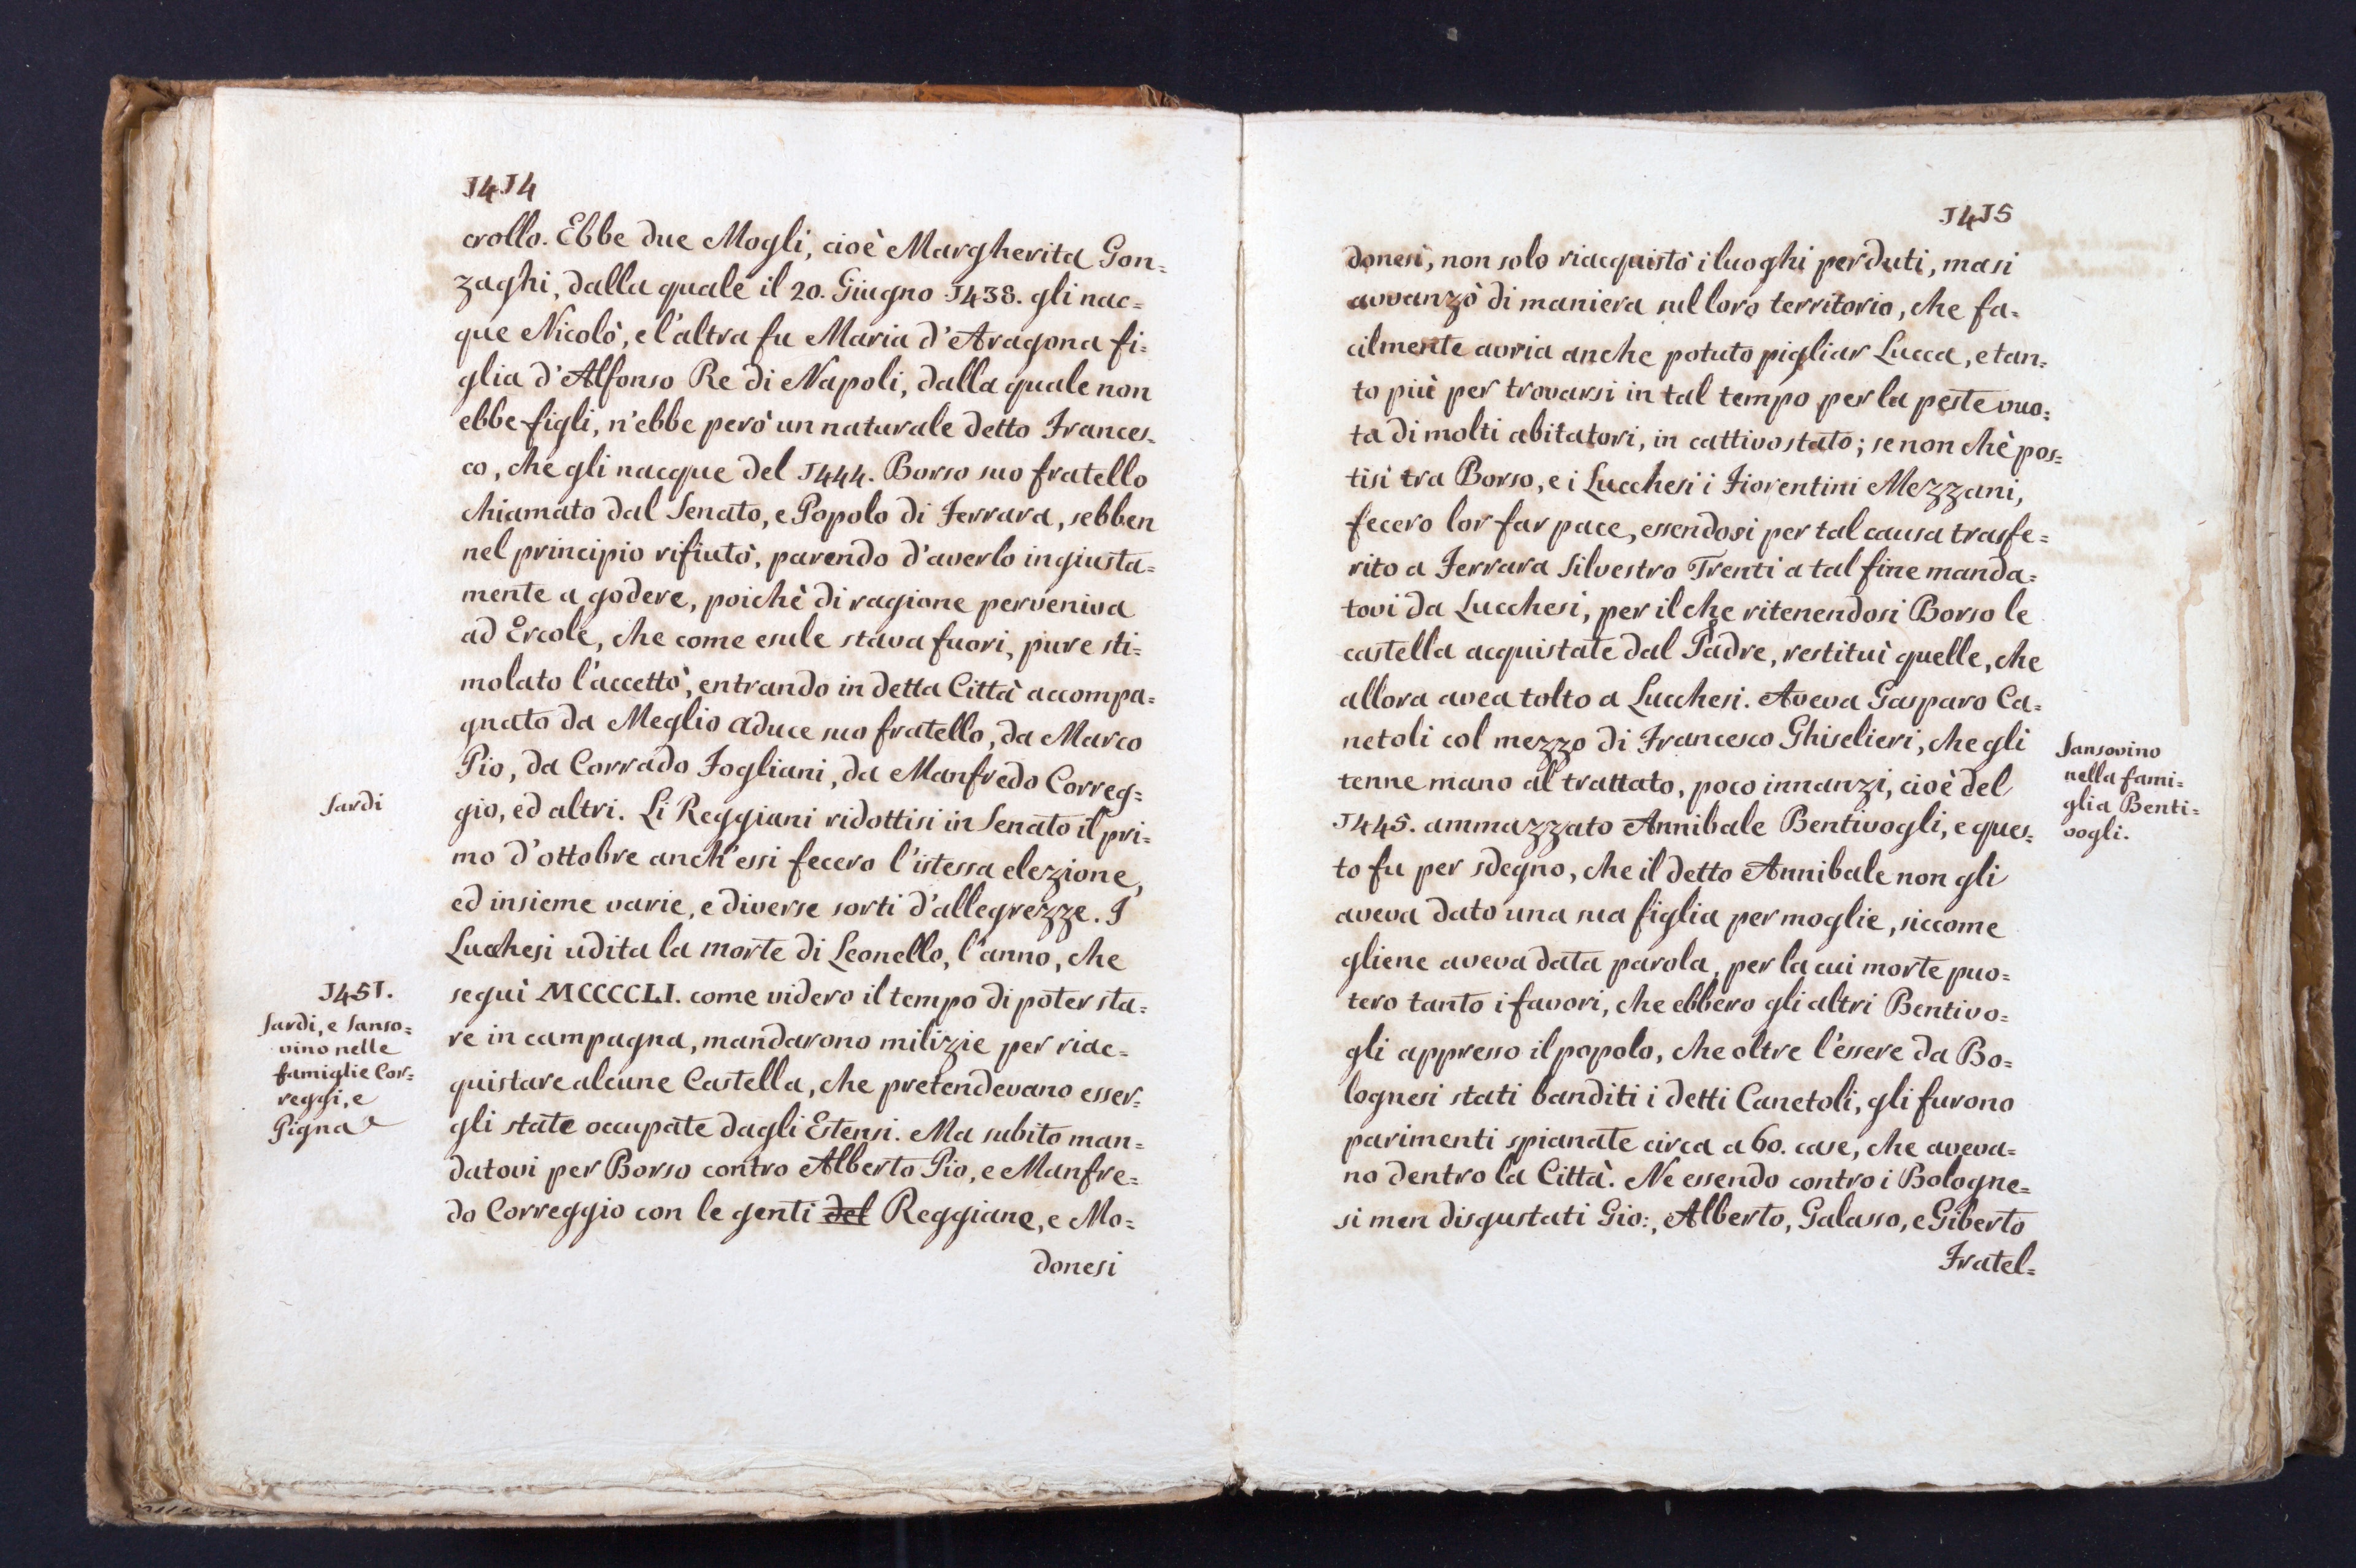 1414
crollo. Ebbe due Mogli, cioè Margherita Gon=
zaghi, dalla quale il 20. Giugno 1438. gli nac=
que Nicolò, e l'altra fu Maria d'Aragona fi=
glia d'Alfonso Re di Napoli, dalla quale non
ebbe figli, n'ebbe però un naturale detto Frances=
co, che gli nacque del 1444. Borso suo fratello
chiamato dal Senato, e Popolo di Ferrara, sebben
nel principio rifiutò, parendo d'averlo ingiusta=
mente a godere, poichè di ragione perveniva
ad Ercole, che come esule stava fuori, pure sti=
molato l'accettò, entrando in detta Città accompa=
gnato da Meglio aduce suo fratello, da Marco
Pio, da Corrado Fogliani, da Manfredo Correg=
Sardi
gio, ed altri. Li Reggiani ridottisi in Senato il pri=
mo d'ottobre anch'essi fecero l'istessa elezione,
ed insieme varie, e diverse sorti d'allegrezze. I
Lucchesi udita la morte di Leonello, l'anno, che
1451.
seguì MCCCCLI. come videro il tempo di poter sta=
Sardi, e Sanso=
vino nelle
famiglie Cor=
reggi, e
Pigna
re in campagna, mandarono milizie per riac=
quistare alcune Castella, che pretendevano esser=
gli state occupate dagli Estensi. Ma subito man=
datovi per Borso contro Alberto Pio, e Manfre=
do Correggio con le genti del Reggiane, e Mo=
donesi
1415
donesi, non solo riacquistò i luoghi perduti, ma si
avvanzò di maniera sul loro territorio, che fa=
cilmente avria anche potuto pigliar Lucca, e tan=
to più per trovarsi in tal tempo per la peste vuo=
ta di molti abitatori, in cattivo stato; se non chè pos=
tisi tra Borso, e i Lucchesi i Fiorentini Mezzani,
fecero lor far pace, essendosi per tal causa trasfe=
rito a Ferrara Silvestro Trenti a tal fine manda=
tovi da Lucchesi, per il che ritenendosi Borso le
castella acquistate dal Padre, restituì quelle, che
allora avea tolto a Lucchesi. Aveva Gasparo Ca=
netoli col mezzo di Francesco Ghiselieri, che gli
tenne mano al trattato, poco innanzi, cioè del
1445. ammazzato Annibale Bentivogli, e ques=
Sansovino
nella fami=
glia Benti=
vogli.
to fu per sdegno, che il detto Annibale non gli
aveva dato una sua figlia per moglie, siccome
gliene aveva data parola, per la cui morte puo=
tero tanto i favori, che ebbero gli altri Bentivo=
gli appresso il popolo, che oltre l'éssere da Bo=
lognesi stati banditi i detti Canetoli, gli furono
parimenti spianate circa a 60. case, che aveva=
no dentro la Città. Ne essendo contro i Bologne=
si men disgustati Gio:, Alberto, Galasso, e Giberto
Fratel=